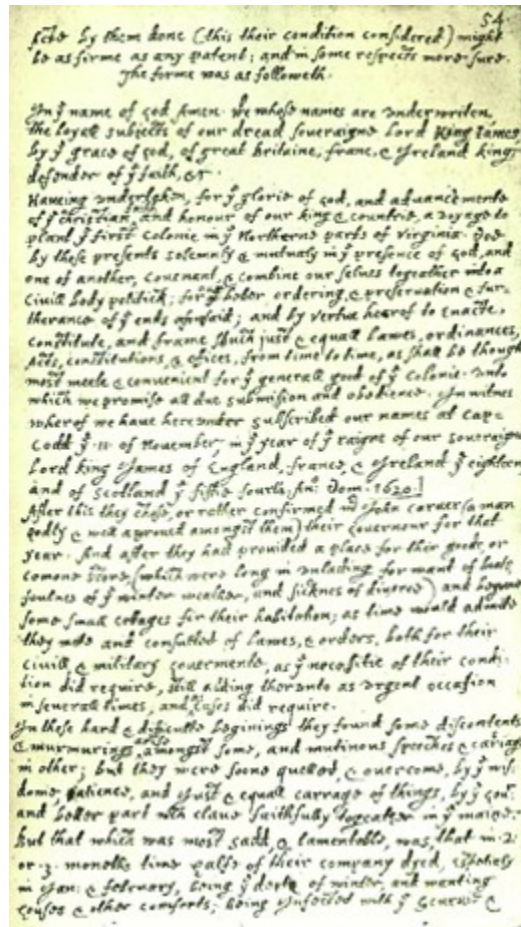 54
facte by them done (this their condition considered) might
be as firme as any patent; and in some respects more sure.
The forme was as followeth.
In yͤ name of god Amen. We whose names are underwriten,
the loyall subjects of our dread soveraigne Lord King James
by yͤ grace of god, of great Britaine, franc, & Ireland king,
defender of yͤ faith, &c
Haveing undertaken, for yͤ glorie of god, and advancemente
of yͤ christian and honour of our king & countrie, a voyage to
plant yͤ first colonie in yͤ Northerne parts of Virginia. Doe
by these presents solemnly & mutualy in yͤ presence of god, and
one of another, covenant, & combine our selves togeather into a
civill body politick; for yͤ better ordering, & preservation & fur-
therance of yͤ ends aforesaid; and by vertue hearof to enacte,
constitute, and frame such just & equall lawes, ordinances,
Acts, constitutions, & offices, from time to time, as shall be thought
most meete & convenient for yͤ generall good of yͤ colonie: unto
which we promise all due submission and obedience. In witnes
wherof we have hereunder subscribed our names at Cap-
Codd yͤ .11. of November, in yͤ year of yͤ raigne of our soveraigne
Lord king James of England, france, & Ireland yͤ eighteen
and of Scotland yͤ fiftie fourth. An: Dom. 1620.]
After this they chose, or rather confirmed mͬ John Carver (a man
godly & well approved amongst them) their governour for that
year. And after they had provided a place for their goods, or
comone store, (which were long in unlading for want of boats,
foulnes of yͤ winter weather, and sicknes of diverce) and begune
some small cottages for their habitation; as time would admitte
they mette and consulted of lawes, & orders, both for their
civill & military govermente, as yͤ necessitie of their condi-
tion did require, still adding therunto as urgent occasion
in severall times, and as cases did require.
In these hard & difficulte beginings they found some discontents
& murmurings amongst some, and mutinous speeches & cariags
in other; but they were soone quelled, & overcome, by yͤ wis-
dome, patience, and just & equall carrage of things, by yͤ govͬ
and better part wch clave faithfully togeather in yͤ maine.
But that which was most sadd, & lamentable, was, that in .2.
or .3. moneths time halfe of their company dyed, espetialy
in Jan: & february, being yͤ depth of winter, and wanting
houses & other comforts; being infected with yͤ scurvie &